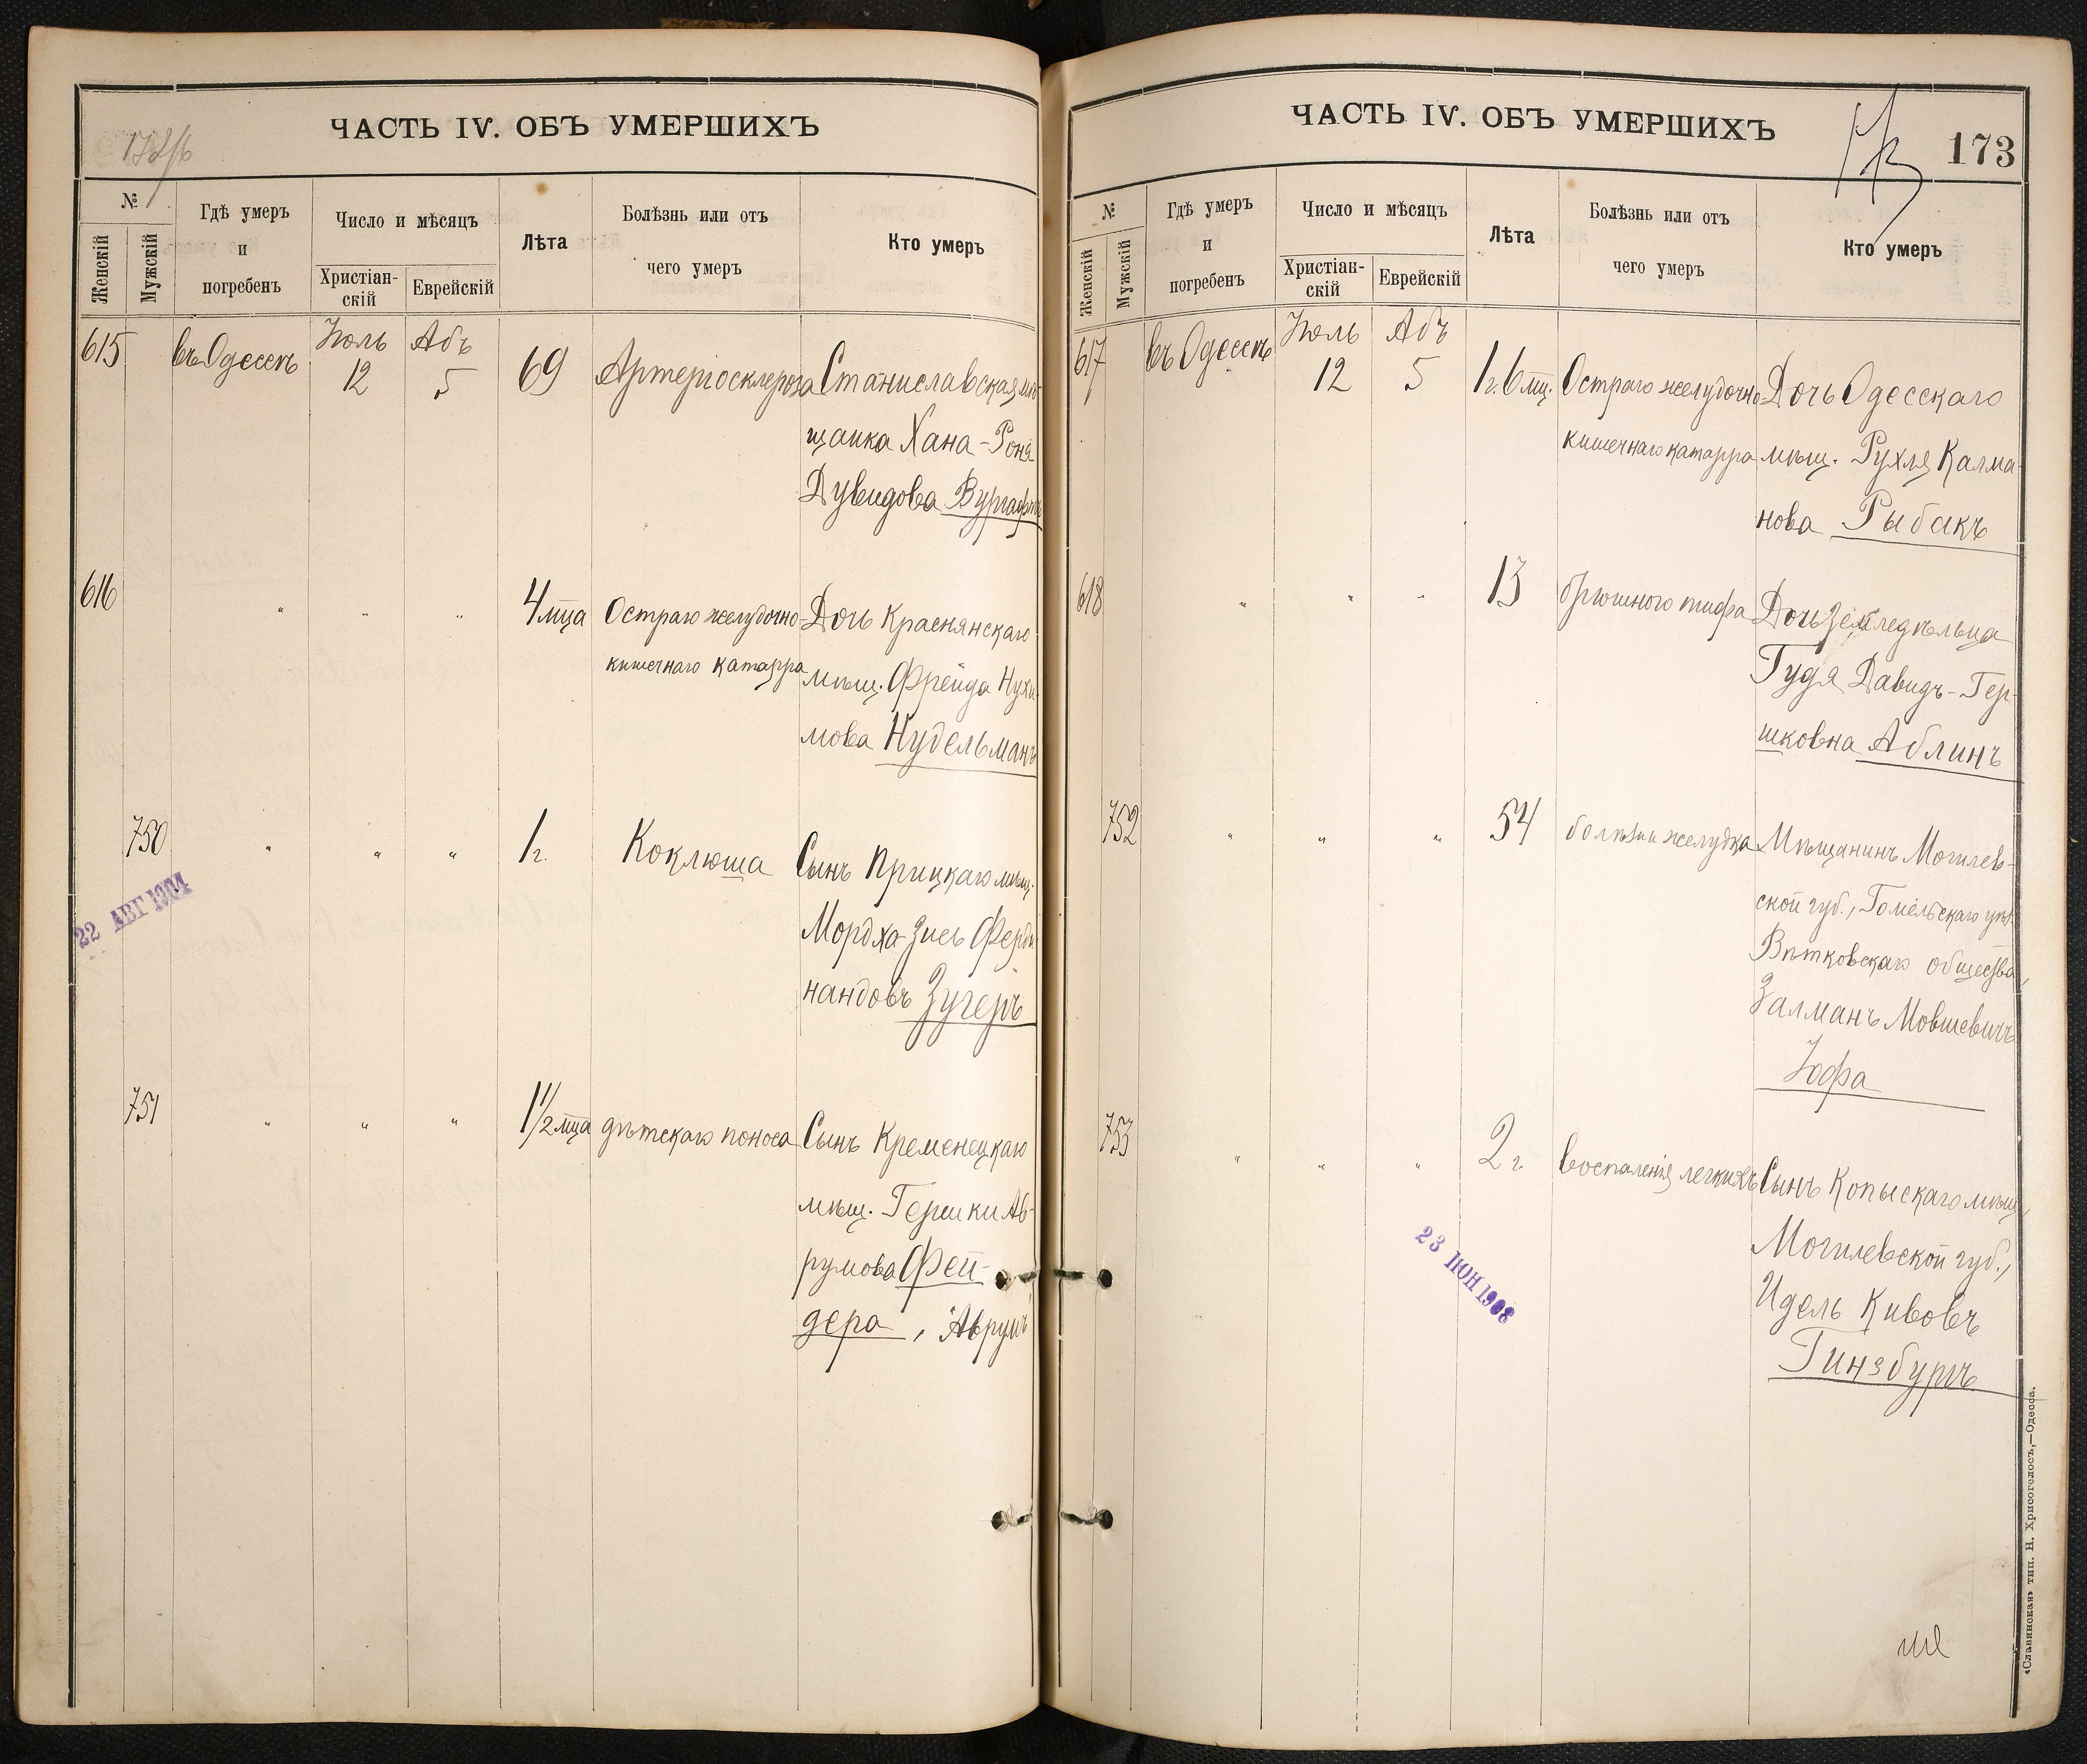 172/б
ЧАСТЬ IV. ОБЪ УМЕРШИХЪ
№
Женскій
Мужскій
Гдѣ умеръ
и
погребенъ
Число и мѣсяцъ
Христіан-
скій
Еврейскій
Лѣта
Болѣзнь или отъ
чего умеръ
Кто умеръ
615
въ Одессѣ
Іюль
12
Абъ
5
69
Артеріосклероза
Станиславская мѣ-
щанка Хана-Роня
Дувидова
616
"
"
"
4 мца
Остраго желудочно-
кишечнаго катарра
Дочь Краснянскаго
мѣщ. Фрейда Нухи-
мова Нудельманъ
750
"
"
"
1 г.
Коклюша
Сынъ Прицкаго мѣщ.
Мордха-Зись Ферди-
нандовъ Зугеръ
751
"
"
"
1 1/2 мца
дѣтскаго поноса
Сынъ Кременецкаго
мѣщ. Гершки Ав-
румова Фей-
дера, Аврумъ
22 АВГ 1904
ЧАСТЬ IV. ОБЪ УМЕРШИХЪ
173
№
Женскій
Мужскій
Гдѣ умеръ
и
погребенъ
Число и мѣсяцъ
Христіан-
скій
Еврейскій
Лѣта
Болѣзнь или отъ
чего умеръ
Кто умеръ
617
въ Одессѣ
Іюль
12
Абъ
5
1 г. 6 мц.
Остраго желудочно-
кишечнаго катарра
Дочь Одесскаго
мѣщ. Рухля Калма-
нова Рыбакъ
618
"
"
"
13
брюшного тифа
Дочь Земледѣльца
Гудя Давидъ-Гер-
шковна Аблинъ
752
"
"
"
54
болѣзни желудка
Мѣщанинъ Могилев-
ской губ., Гомельскаго уѣз.
Вѣтковскаго общества,
Залманъ Мовшевичъ
Іофа
753
"
"
"
2 г.
воспаленія легкихъ
Сынъ Копыскаго мѣщ.,
Могилевской губ.,
Идель Кивовъ
Гинзбургъ
23 ІЮН 1908
«Славянская» тип. Н. Хрисогелосъ,—Одесса.